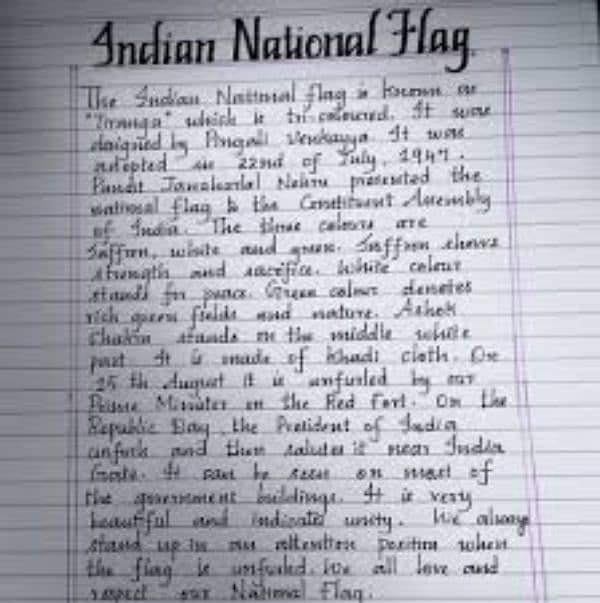 Indian National Flag.
The Indian National flag is known as
"Tiranga" which is tri-coloured. It was
designed by Pingali Venkayya. It was
adopted on 22nd of July, 1947.
Pandit Jawaharlal Nehru presented the
national flag to the Constituent Assembly
of India. The three colours are
Saffron, white and green. Saffron shows
strength and sacrifice. White colour
stands for peace. Green colour denotes
rich green fields and nature. Ashok
Chakra stands on the middle white
part. It is made of khadi cloth. On
th August it is unfurled by our
Prime Minister on the Red Fort. On the
Republic Day, the President of India
unfurls and then salutes it near India
Gate. It can be seen on most of
the government buildings. It is very
beautiful and indicates unity. We always
stand up in an attention position when
the flag is unfurled. We all love and
respect our National Flag.